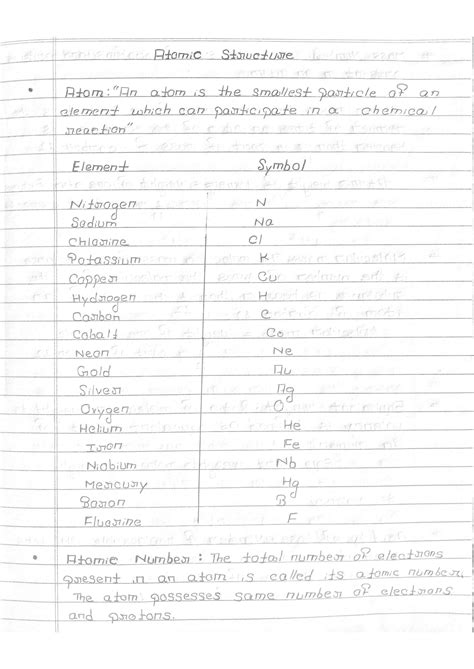 Atomic Structure
• Atom: "An atom is the smallest particle of an
element which can participate in a chemical
reaction"
Element Symbol
Nitrogen N
Sodium Na
Chlorine Cl
Potassium K
Copper Cu
Hydrogen H
Carbon C
Cobalt Co
Neon Ne
Gold Au
Silver Ag
Oxygen O
Helium He
Iron Fe
Niobium Nb
Mercury Hg
Boron B
Fluorine F
• Atomic Number: The total number of electrons
present in an atom is called its atomic number.
The atom possesses same number of electrons
and protons.